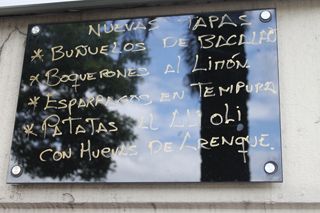 NUEVAS TAPAS
* BUÑUELOS DE BACALAO
* BOQUERONES al LIMÓN
* ESPARRAGOS EN TEMPURA
* PATATAS al ALI OLI
CON HUEVAS DE ARENQUE.